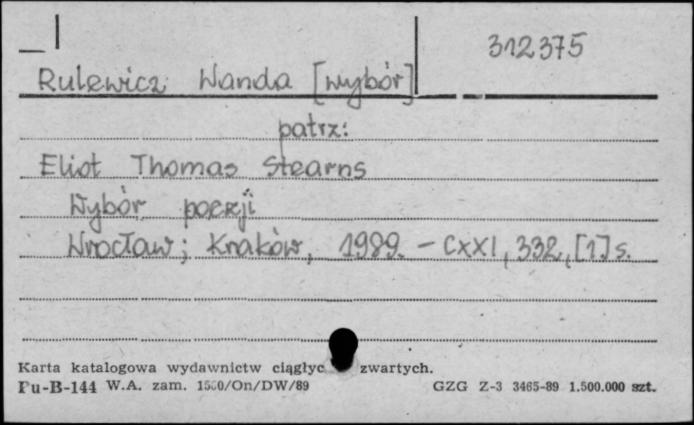 312375
Rulewicz Wanda [wybór]
patrz:
Eliot Thomas Stearns
Wybór poezji
Wrocław; Kraków, 1989. - CXXI, 332, [1] s.
Karta katalogowa wydawnictw zwartych.
Pu-B-144 W.A. zam. /On/DW/89 GZG Z-3 3465-89 1.500.000 szt.